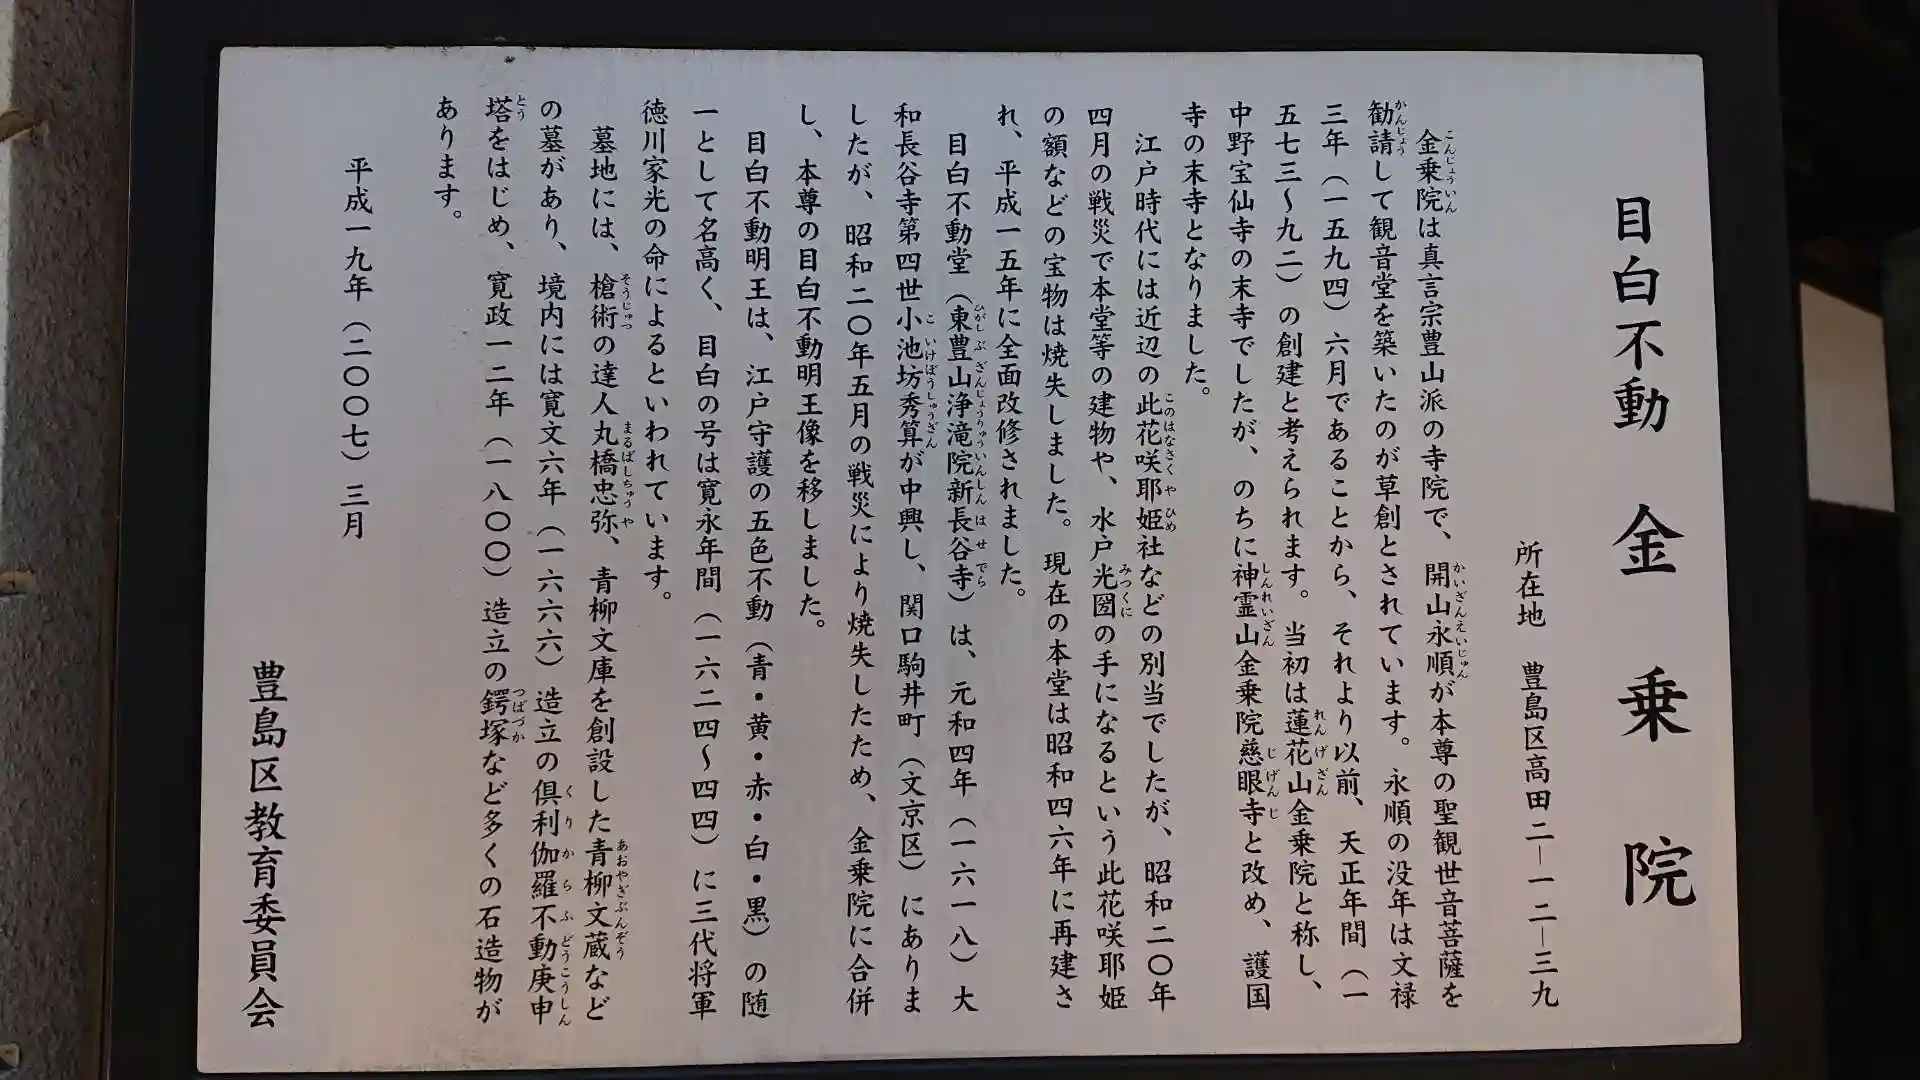 目白不動 金乗院
所在地 豊島区高田二―一二―三九
金乗院は真言宗豊山派の寺院で、開山永順が本尊の聖観世音菩薩を
勧請して観音堂を築いたのが草創とされています。永順の没年は文禄
三年（一五九四）六月であることから、それより以前、天正年間（一
五七三〜九二）の創建と考えられます。当初は蓮花山金乗院と称し、
中野宝仙寺の末寺でしたが、のちに神霊山金乗院慈眼寺と改め、護国
寺の末寺となりました。
江戸時代には近辺の此花咲耶姫社などの別当でしたが、昭和二〇年
四月の戦災で本堂等の建物や、水戸光圀の手になるという此花咲耶姫
の額などの宝物は焼失しました。現在の本堂は昭和四六年に再建さ
れ、平成一五年に全面改修されました。
目白不動堂（東豊山浄滝院新長谷寺）は、元和四年（一六一八）大
和長谷寺第四世小池坊秀算が中興し、関口駒井町（文京区）にありま
したが、昭和二〇年五月の戦災により焼失したため、金乗院に合併
し、本尊の目白不動明王像を移しました。
目白不動明王は、江戸守護の五色不動（青・黄・赤・白・黒）の随
一として名高く、目白の号は寛永年間（一六二四〜四四）に三代将軍
徳川家光の命によるといわれています。
墓地には、槍術の達人丸橋忠弥、青柳文庫を創設した青柳文蔵など
の墓があり、境内には寛文六年（一六六六）造立の倶利伽羅不動庚申
塔をはじめ、寛政一二年（一八〇〇）造立の鍔塚など多くの石造物が
あります。
平成一九年（二〇〇七）三月
豊島区教育委員会